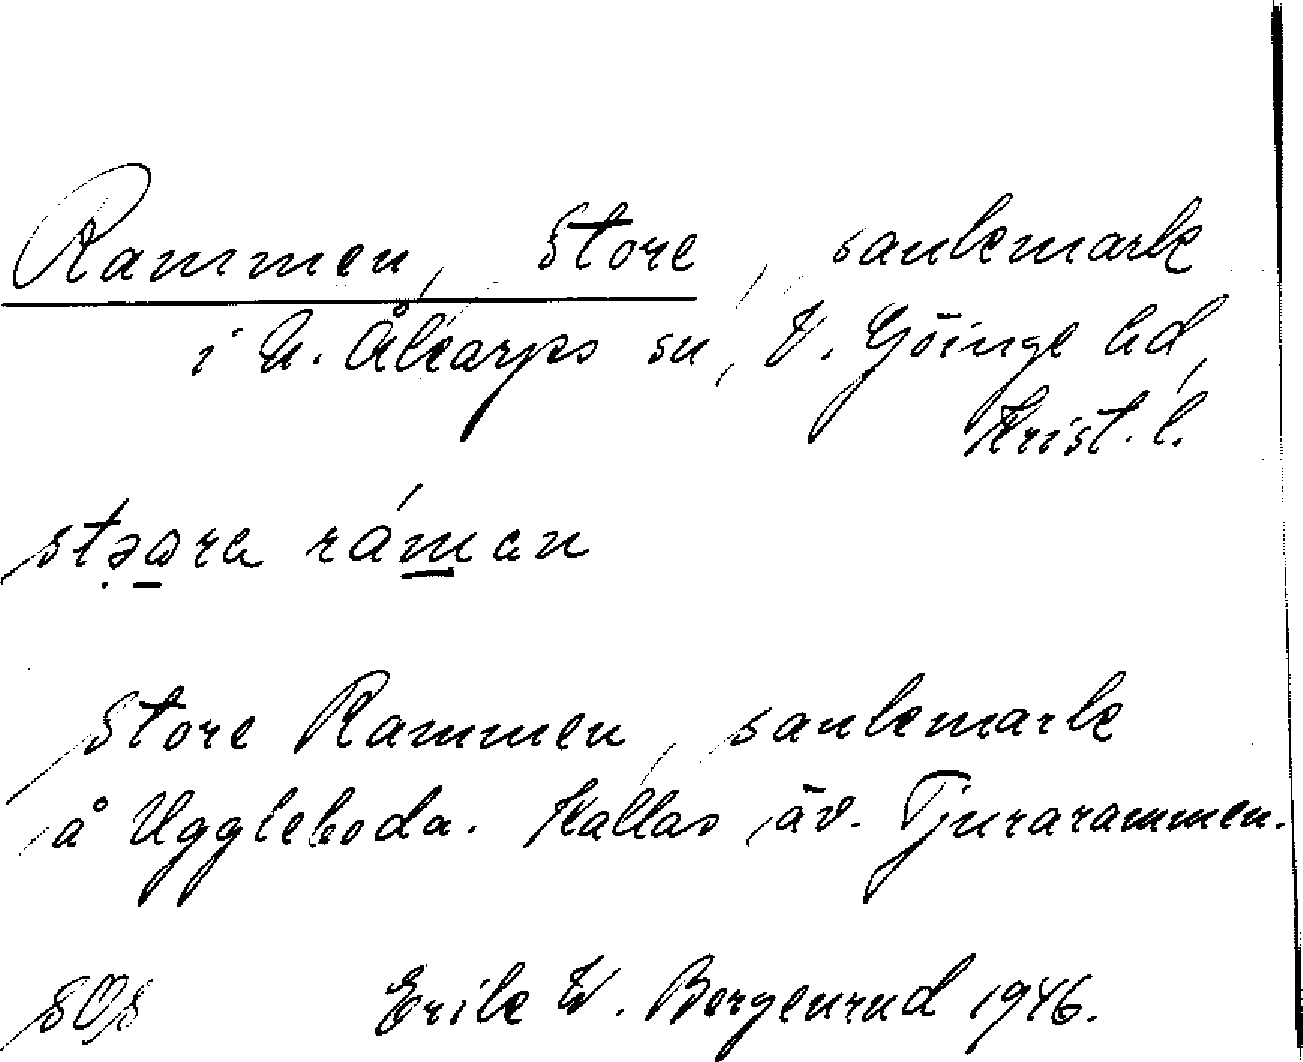 Rammen, Store, sankmark
i N. Åkarps sn, V. Göinge hd,
Krist. l.
stəara ráman
Store Rammen, sankmark
å Uggleboda. Kallas äv. Tjurarammen.
SOS Erik W. Bergenrud 1946.